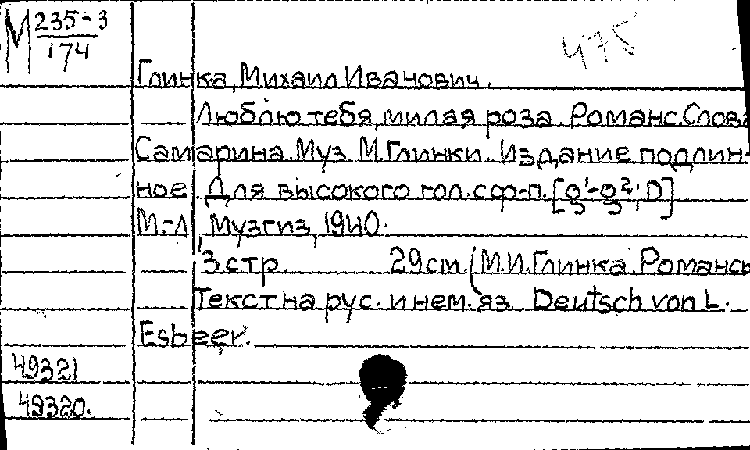 М 235-3
174
475
Глинка, Михаил Иванович.
Люблю тебя, милая роза. Романс. Слова
Самарина. Муз. М. Глинки. Издание подлин-
ное. Для высокого гол. с ф-п.
М.-Л., Музгиз, 1940.
3 стр. 29 см. (М.И. Глинка. Романсы
Текст на рус. и нем. яз. Deutsch von L.
Esbeer.
49321
49320.